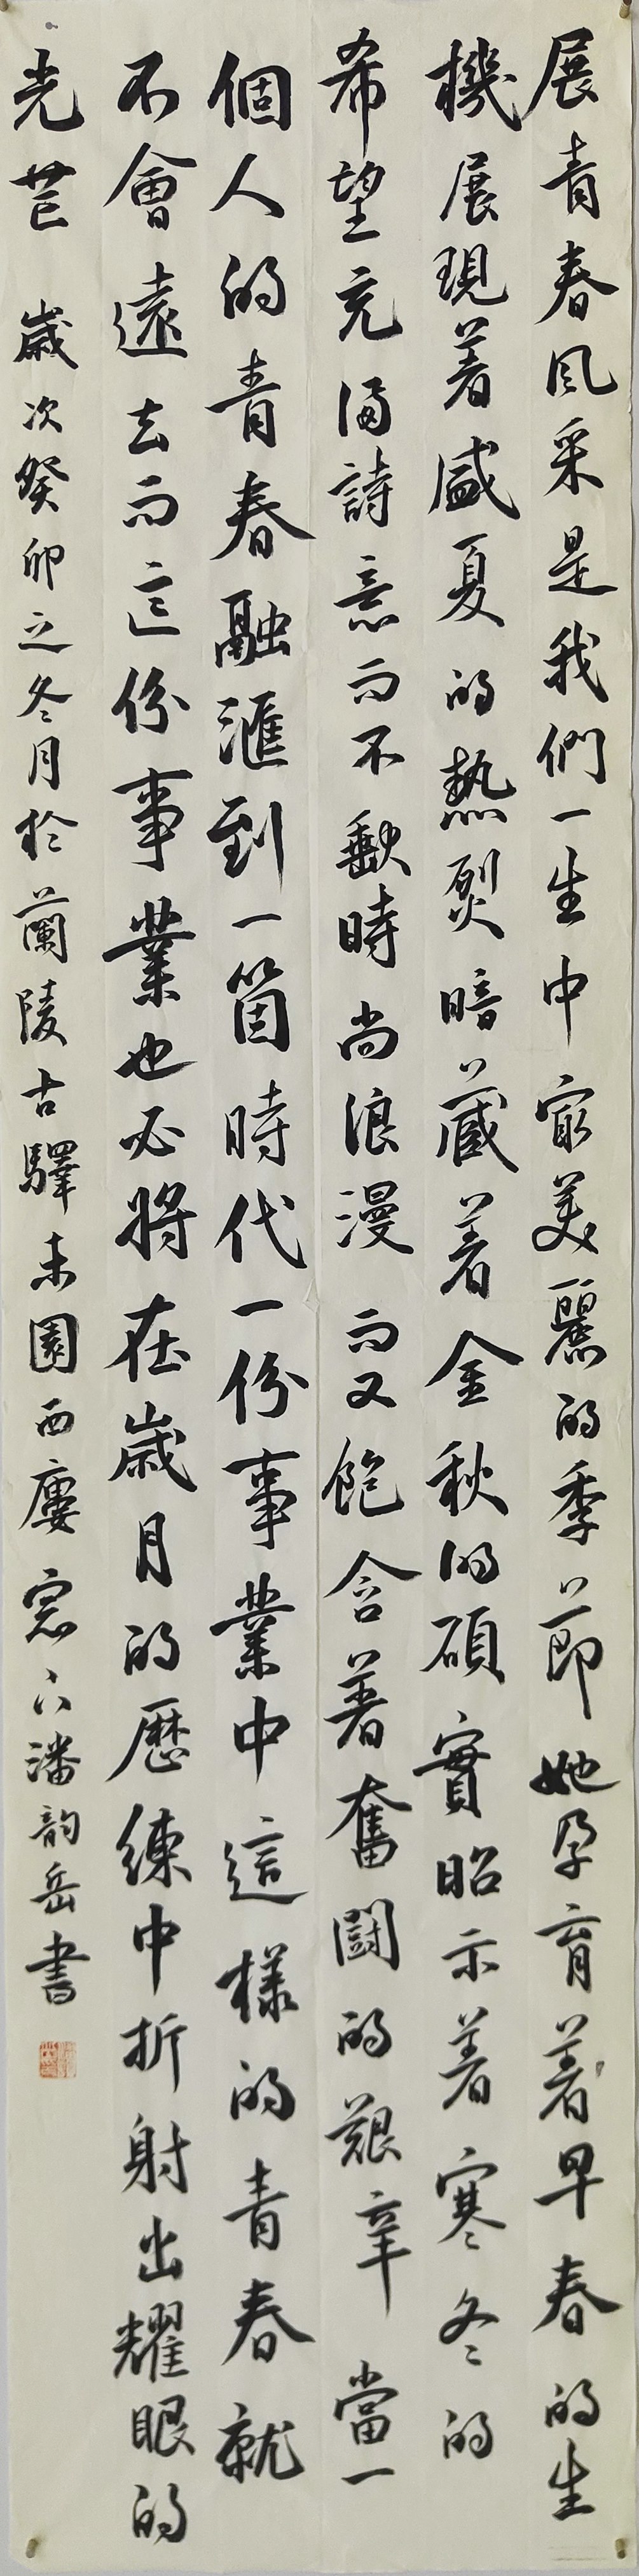 展青春風采是我們一生中最美麗的季節她孕育著早春的生
機展現着盛夏的熱烈暗藏着金秋的碩實昭示着寒冬的
希望充滿詩意而不歇時尚浪漫而又飽含著奮鬪的艱辛當一
個人的青春融滙到一箇時代一份事業中這樣的青春就
不會遠去而這份事業也必將在歲月的歷練中折射出耀眼的
光芒 歲次癸卯之冬月於蘭陵古驛未園西廔窓下潘韵岳書